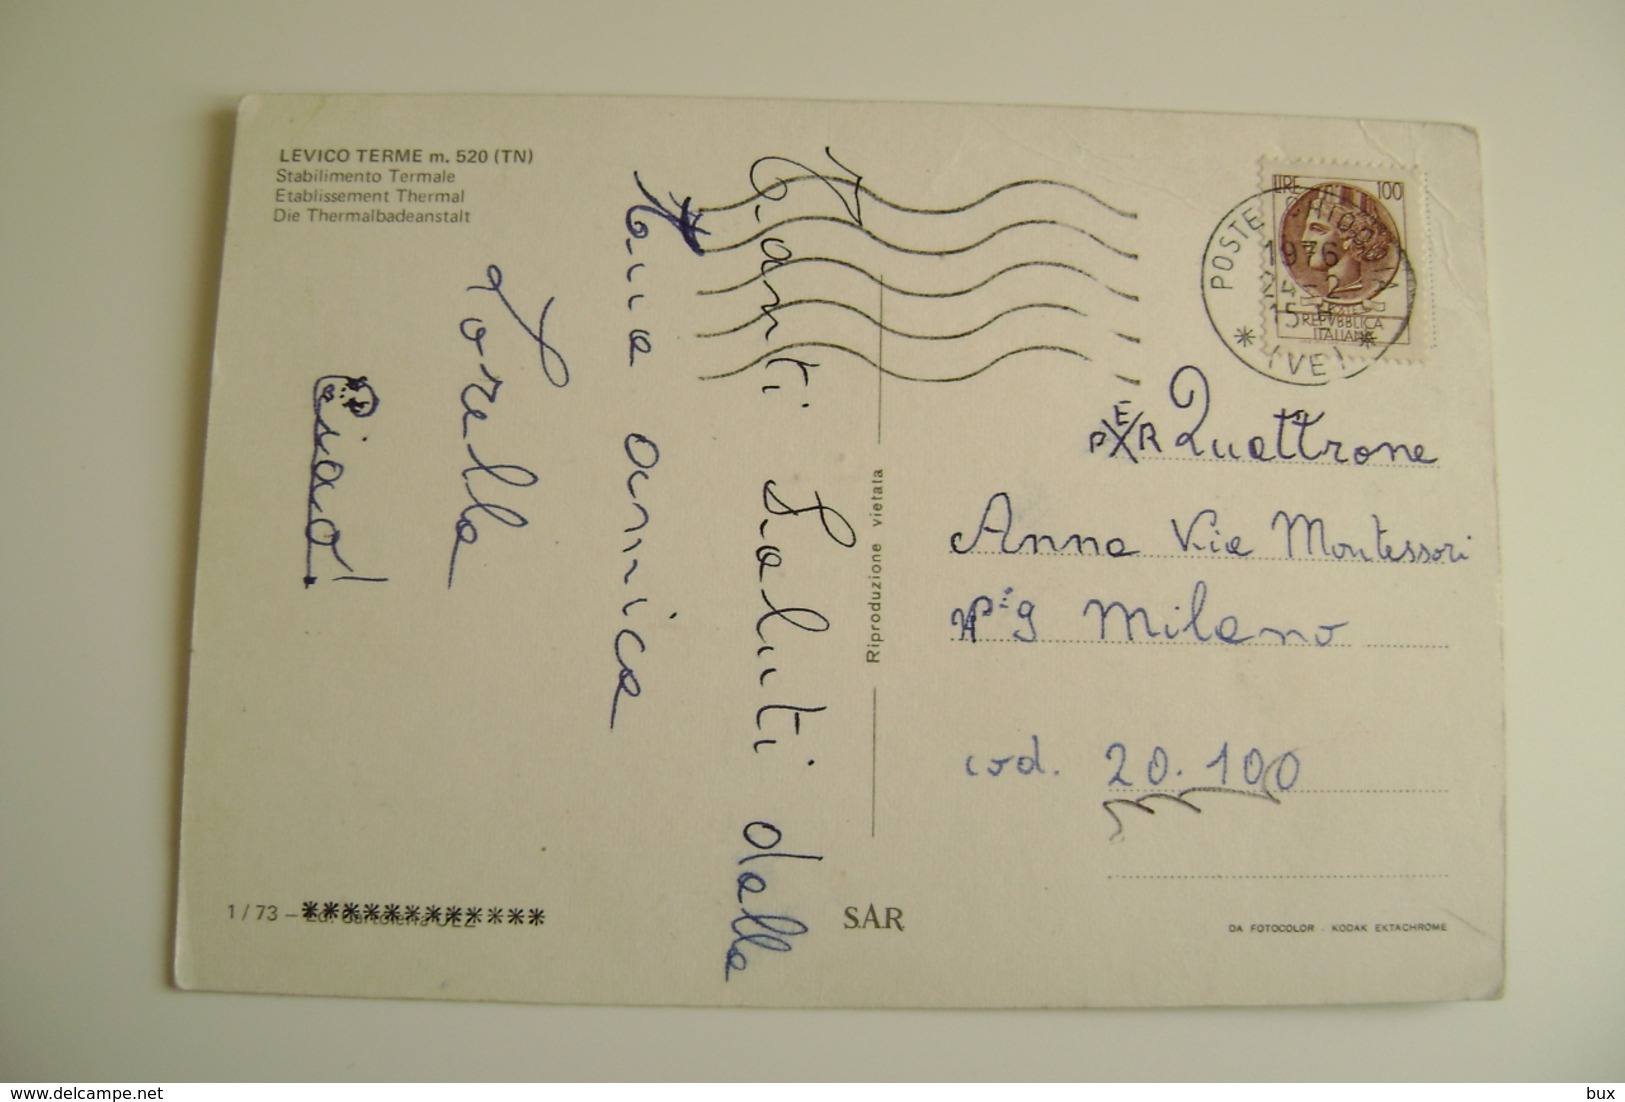 LEVICO TERME m. 520 (TN)
Stabilimento Termale
Etablissement Thermal
Die Thermalbadeanstalt
Tanti Saluti dalla
tua amica
Lorella
Ciao!
1/73 - Ed. Cartoleria
Riproduzione vietata
S.A.R
LIRE 100
POSTE
REPVBBLICA
ITALIANA
POSTE CHIOGGIA
1976
24-2
15
(VE)
PER Quattrone
Anna Via Montessori
N° 9 Milano
cod. 20.100
DA FOTOCOLOR - KODAK EKTACHROME
© delcampe.net
bux